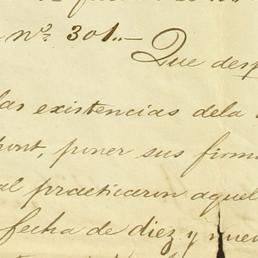 nº 301.— Que desp
las existencias dela
pont, poner sus firma
al practicaron aquel
fecha de diez y nuev